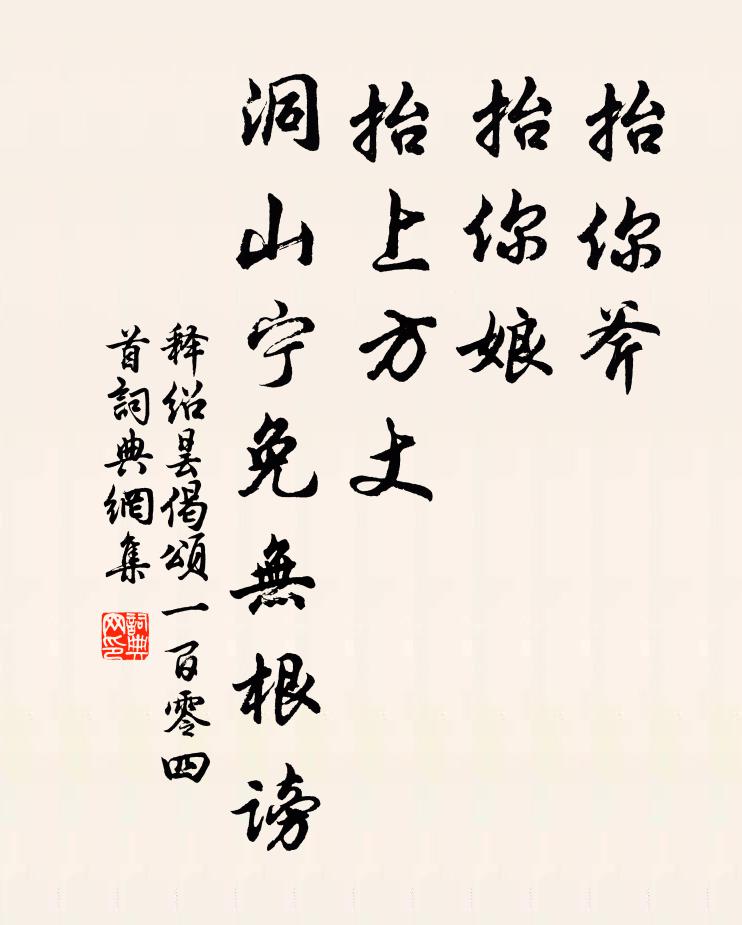 抬你斧
抬你娘
抬上方丈
洞山宁免無根謗
释绍昙偈頌一百零四
首詞典網集
詞典
网印